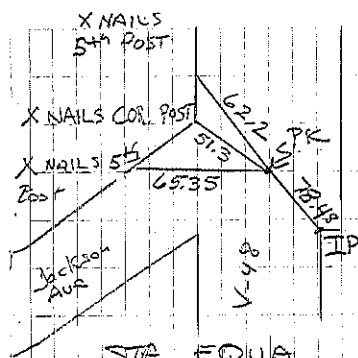 X NAILS
5th POST
X NAILS COR. POST
62.2
51.3
PK
X NAILS 5th
Post
65.35
78.48
IP
Jackson
Ave
V-48
STA EQUA